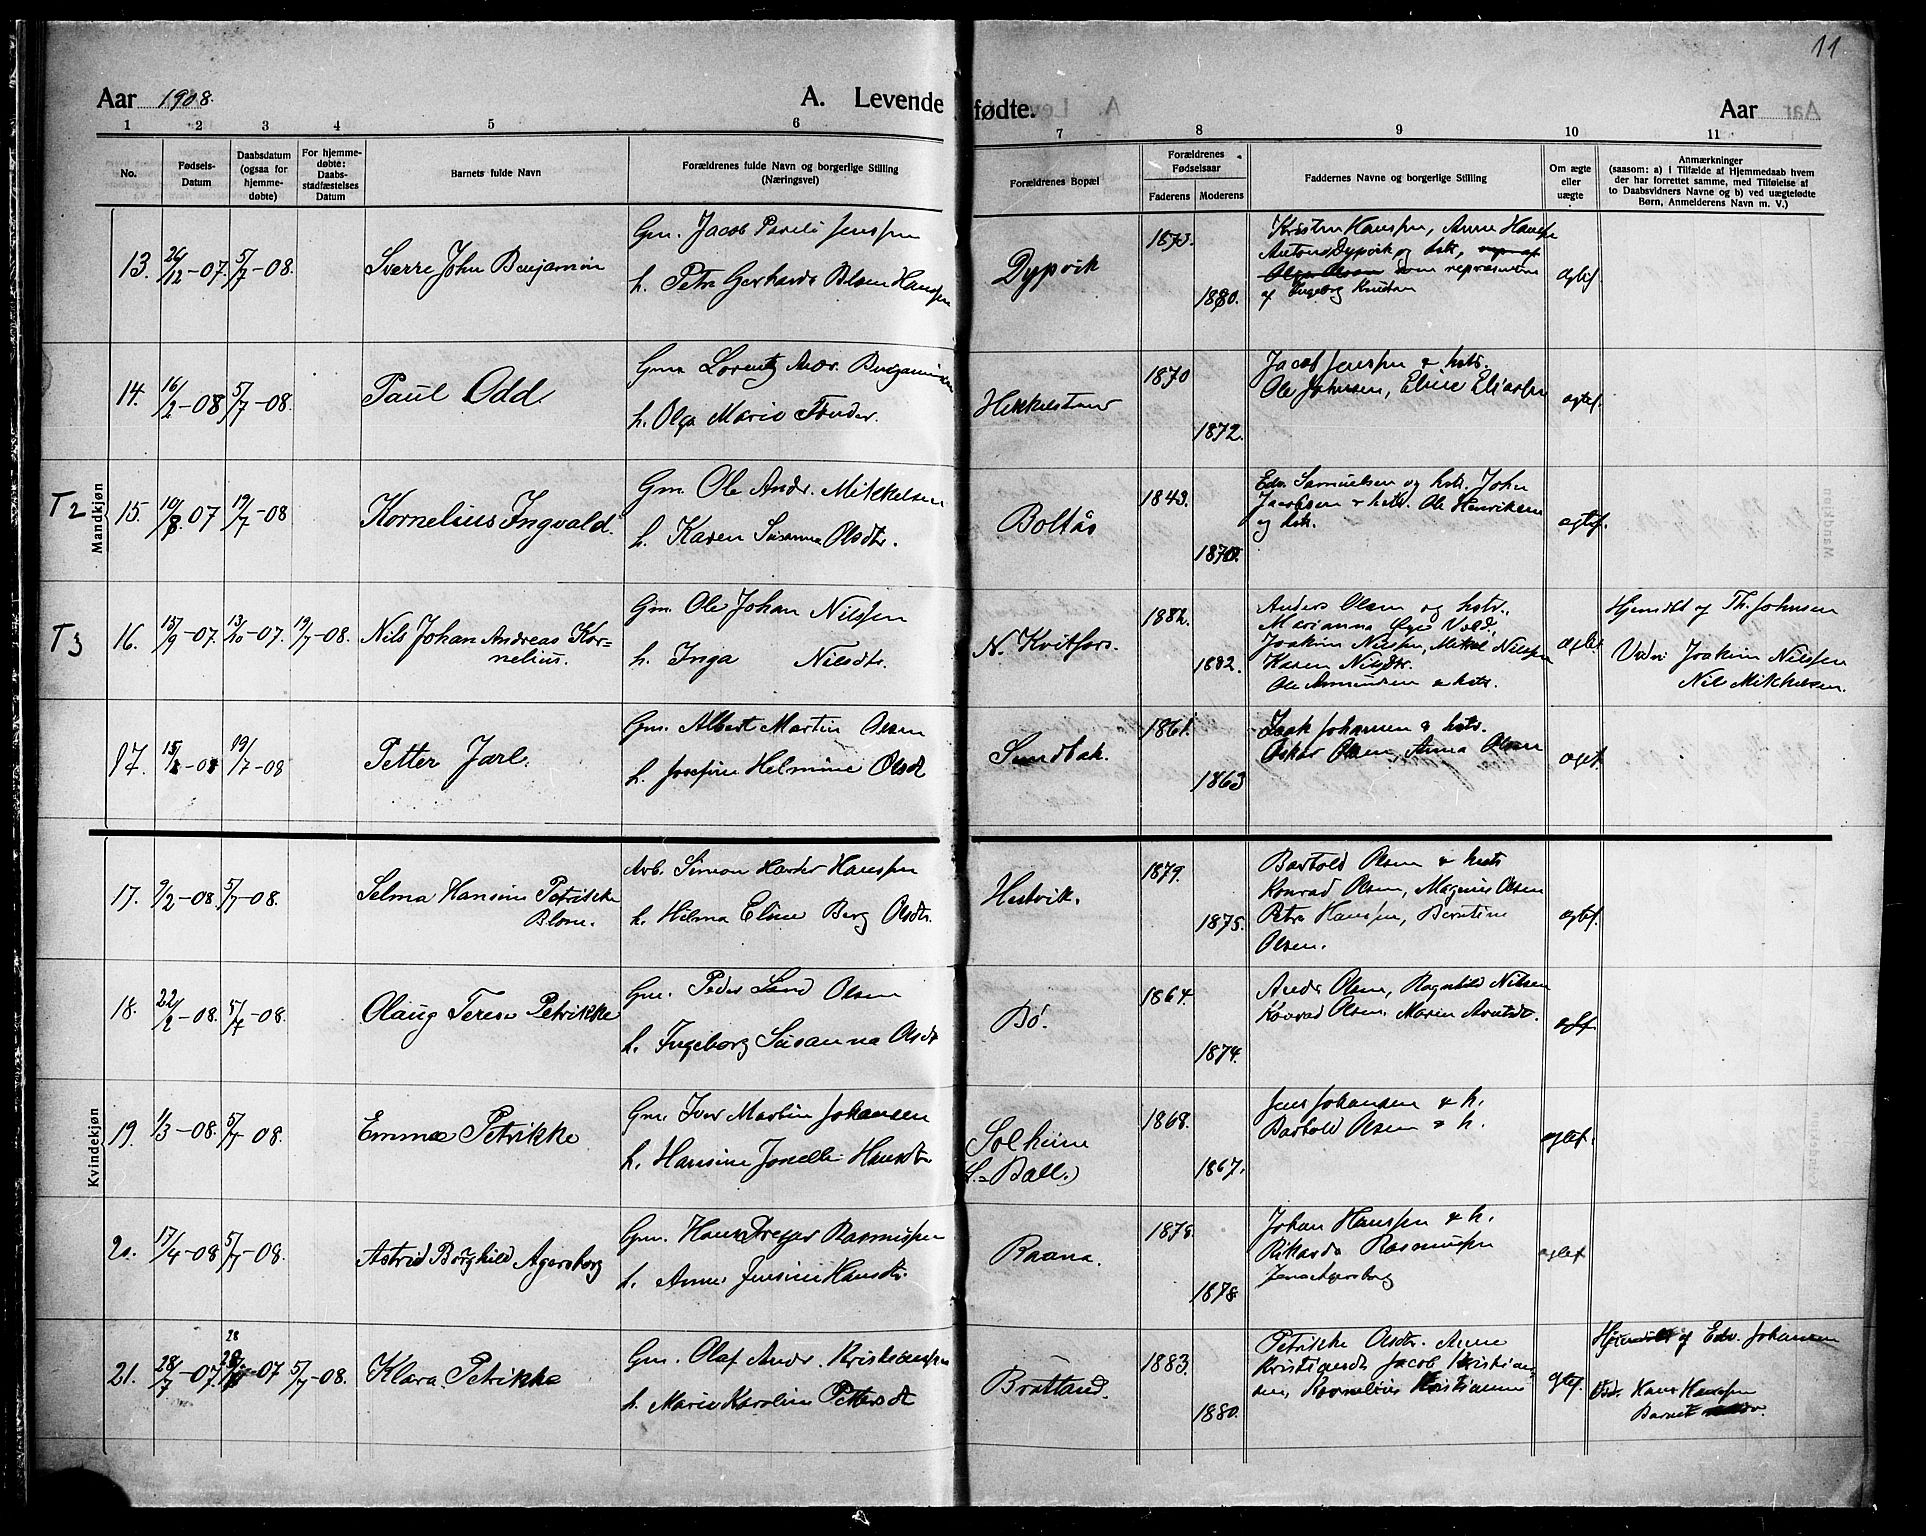 11
Aar 1908.
A. Levende
fødte.
Aar
1 2 3 4 5 6 7 8 9 10 11
No.
Fødsels-
Datum
Daabsdatum
(ogsaa for
hjemme-
døbte)
For hjemme-
døbte:
Daabs-
stadfæstelses
Datum
Barnets fulde Navn
Forældrenes fulde Navn og borgerlige Stilling
(Næringsvei)
Forældrenes Bopæl
Forældrenes
Fødselsaar
Faderens Moderens
Faddernes Navne og borgerlige Stilling
Om ægte
eller
uægte
Anmærkninger
(saasom: a) i Tilfælde af Hjemmedaab hvem
der har forrettet samme, med Tilføielse af
to Daabsvidners Navne og b) ved uægtefødte
Børn, Anmelderens Navn m. V.)
Mandkjøn
13. 26/12-07. 5/7-08.
Sverre John Benjamin
Gm. Jacob Pareli Jenssen
h. Petra Gerharda Olsen Hanssen
Dypvik
1873.
1880.
Kristen Hanssen, Anna Hanssen
Anton Dypvik og hstr,
som repræsentant
af Ingeborg Knutsen
ægtef.
14. 16/2-08 5/7-08.
Paul Odd.
Gm. Lorentz Andr. Benjaminsen
h. Olga Marie Tender.
Hekkelstrand
1870
1872.
Jacob Jenssen & hstr.
Ole Johnsen, Eline Eliassen
ægtef.
T2 15. 10/8 07 19/7-08
Kornelius Ingvald.
Gm. Ole Andr. Mikkelsen
h. Karen Susanna Olsdtr.
Boltås
1843.
1870.
Edv. Samuelsen og hstr. John
Jacobsen & hstr. Ole Henriksen
og hstr.
ægtef.
T3 16. 15/9-07. 13/10-07. 19/7-08.
Nils Johan Andreas Kor=
nelius.
Gm. Ole Johan Nilssen
h. Inga Nilsdtr.
N. Kvitfors.
1882.
1882.
Anders Olsen og hstr.
Marianna Vold,
Joakim Nilssen, Mikal Nilssen
Karen Nilsdtr.
Ole Amundsen & hstr.
ægtef.
Hjemdbt af Th. Johnsen
Vidn: Joakim Nilssen
Nils Mikkelsen.
17. 19/7-08
Petter Jarl.
Gm. Albert Martin Olsen
h. Josefine Helmine Olsdt
Sundbak.
1861.
1863
Isak Johansen & hstr.
Oskar Olsen, Anna Olsen
ægtef.
Kvindekjøn
17. 9/2-08. 5/7-08.
Selma Hansine Petrikke
Blom.
Arb. Simon Harder Hanssen
h. Hilma Eline Berg Olsdtr.
Hestvik.
1879.
1875.
Bartold Olsen & hustr
Konrad Olsen, Magnus Olsen
Petra Hanssen, Berntine
Olsen.
ægtef.
18. 22/2-08. 5/7-08.
Olaug Terese Petrikke
Gm. Peder Sand Olsen
h. Ingeborg Susanna Olsdt
Bö.
1864.
1874.
Andr Olsen, Ragnhild Nilsen
Konrad Olsen. Maren Arntdt.
ægtef
19. 1/3-08. 5/7 08.
Emma Petrikke
Gm. Iver Martin Johansen
h. Hansine Jonelle Hansdtr
Solheim
(L. Ball.)
1868.
1867.
Jens Johansen & h.
Bartold Olsen & h.
ægtef.
20. 17/4-08 5/7-08.
Astrid Borghild Agersborg
Gm. Hans Dreyer Rasmussen
h. Anna Jensine Hansdtr.
Raana.
1878.
1878
Johan Hanssen & h.
Rikarda Rasmussen
Jens Agersborg
ægtef
21. 28/7-07. 28 -07 5/7-08.
Klara Petrikke
Gm. Olaf Andr. Kristiansen
h. Marie Karoline Pettersdt
Bratland.
1883.
1880.
Petrikke Olsdtr. Anne
Kristiansdt, Jacob Kristian-
sen, Kornelius Kristiansen
ægtef.
Hjemdbt af Edv. Johansen
Vidn. Hans Hanssen